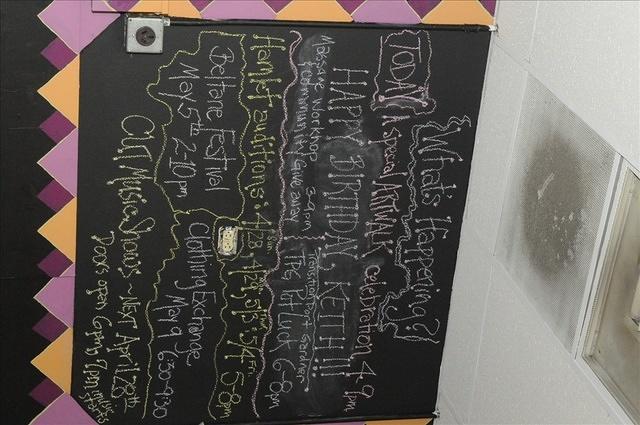 What's Happening?!
TODAY A special ARTWALK celebration 4-9 pm
HAPPY BIRTHDAY, KEITH!!!
Massage Workshop 3-4pm
Community Give away
TPG Pot Luck 6-8pm
Hamlet auditions: 4/28, 4/29, 5/3, 5/4 5-8pm
Beltane Festival
May 5th 2-10pm
Clothing Exchange
May 9 630-930
CUT Music Shows ~ Next April 28th
Doors open 6pm